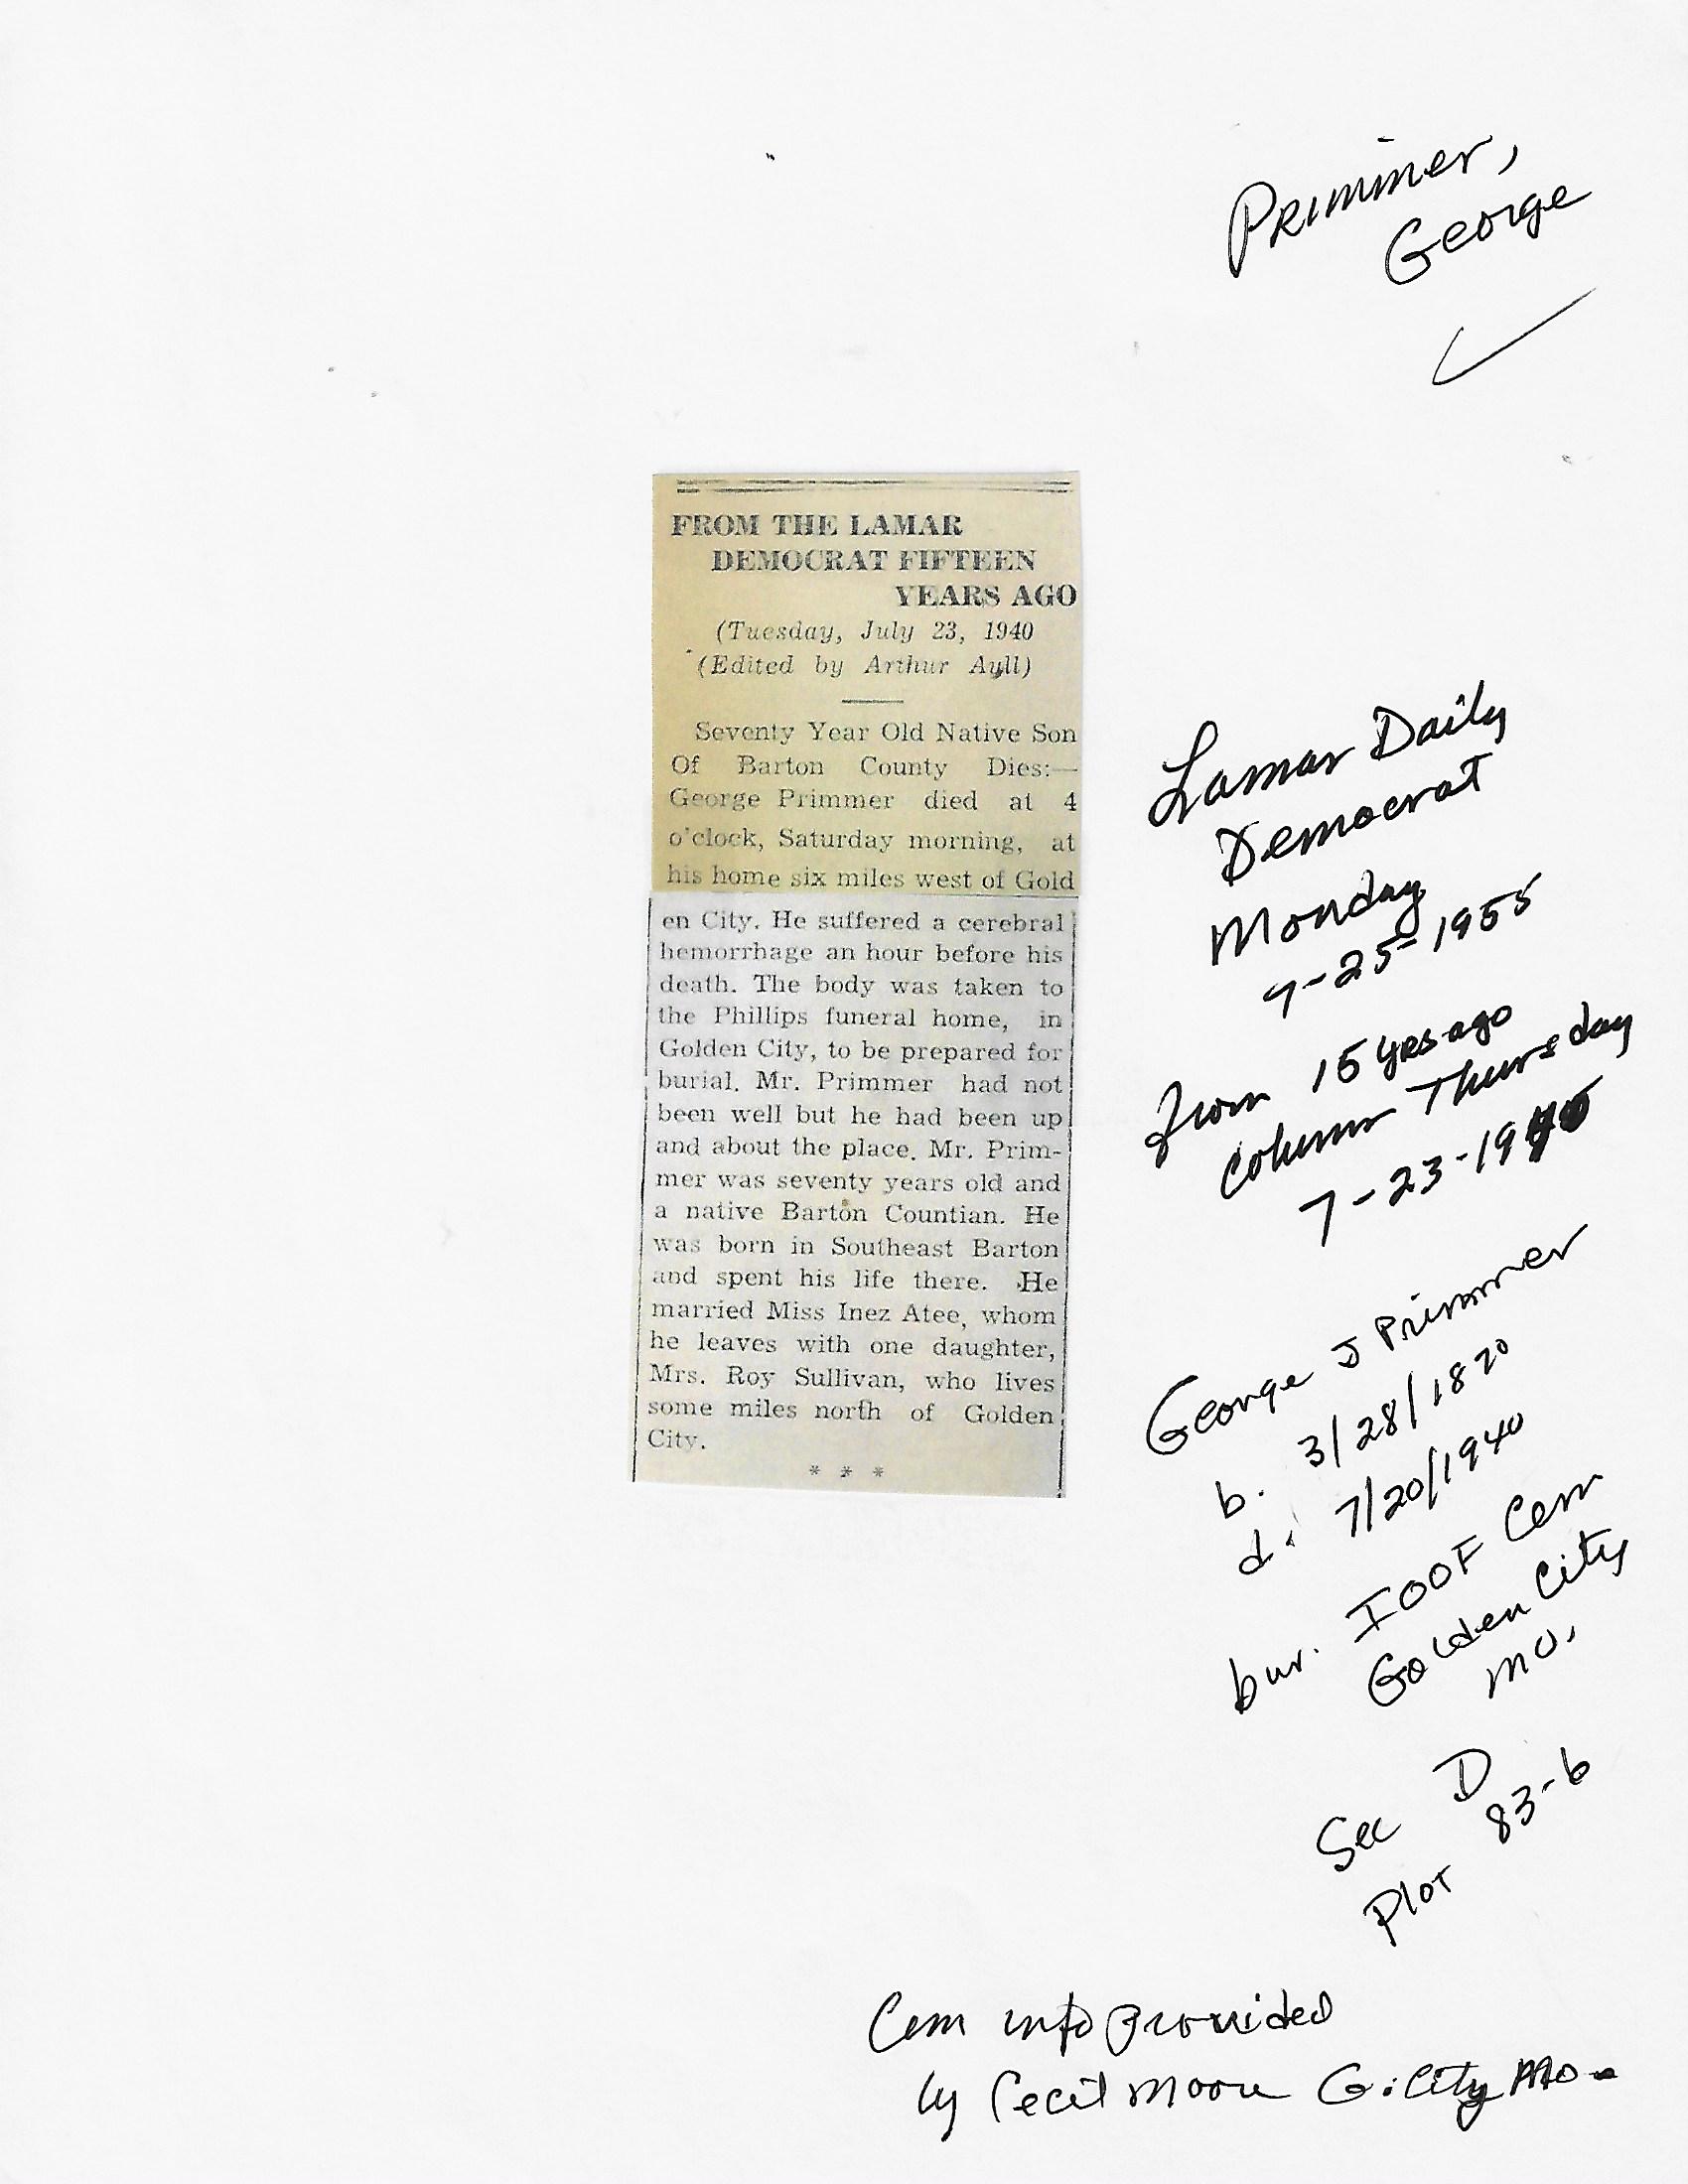 Primmer,
George
FROM THE LAMAR
DEMOCRAT FIFTEEN
YEARS AGO
(Tuesday, July 23, 1940
(Edited by Arthur Ayll)
Seventy Year Old Native Son
Of Barton County Dies:—
George Primmer died at 4
o'clock, Saturday morning, at
his home six miles west of Gold
en City. He suffered a cerebral
hemorrhage an hour before his
death. The body was taken to
the Phillips funeral home, in
Golden City, to be prepared for
burial. Mr. Primmer had not
been well but he had been up
and about the place. Mr. Prim-
mer was seventy years old and
a native Barton Countian. He
was born in Southeast Barton
and spent his life there. He
married Miss Inez Atee, whom
he leaves with one daughter,
Mrs. Roy Sullivan, who lives
some miles north of Golden
City.
* * *
Lamar Daily
Democrat
Monday
7-25-1955
from 15 yrs ago
Column Thursday
7-23-1940
George J Primmer
b. 3/28/1870
d. 7/20/1940
bur. IOOF Cem
Golden City
MO.
Sec D
Plot 83-6
Cem info Provided
by Cecil Moore G. City Mo-